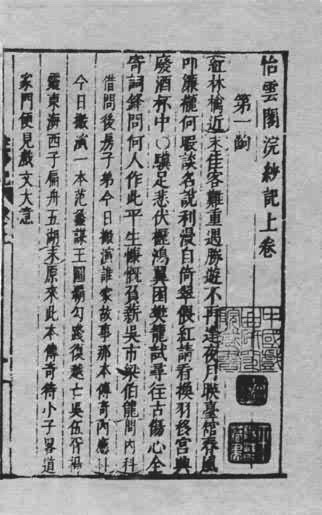 怡雲閣浣紗記上卷
第一齣
紅林檎近末佳客難重遇勝遊不再逢夜月映臺館春風
叩簾櫳何暇談名說利漫自倚翠偎紅請看換羽移宮興
廢酒杯中○驥足悲伏櫪鴻翼困樊籠試尋往古傷心全
寄詞鋒問何人作此平生慷慨負薪吳市梁伯龍問內科
借問後房子弟今日搬演誰家故事那本傳奇內應科
今日搬演一本范蠡謀王圖霸勾踐復越亡吳伍胥揚
靈東海西子扁舟五湖末原來此本傳奇待小子畧道
家門便見戲文大意